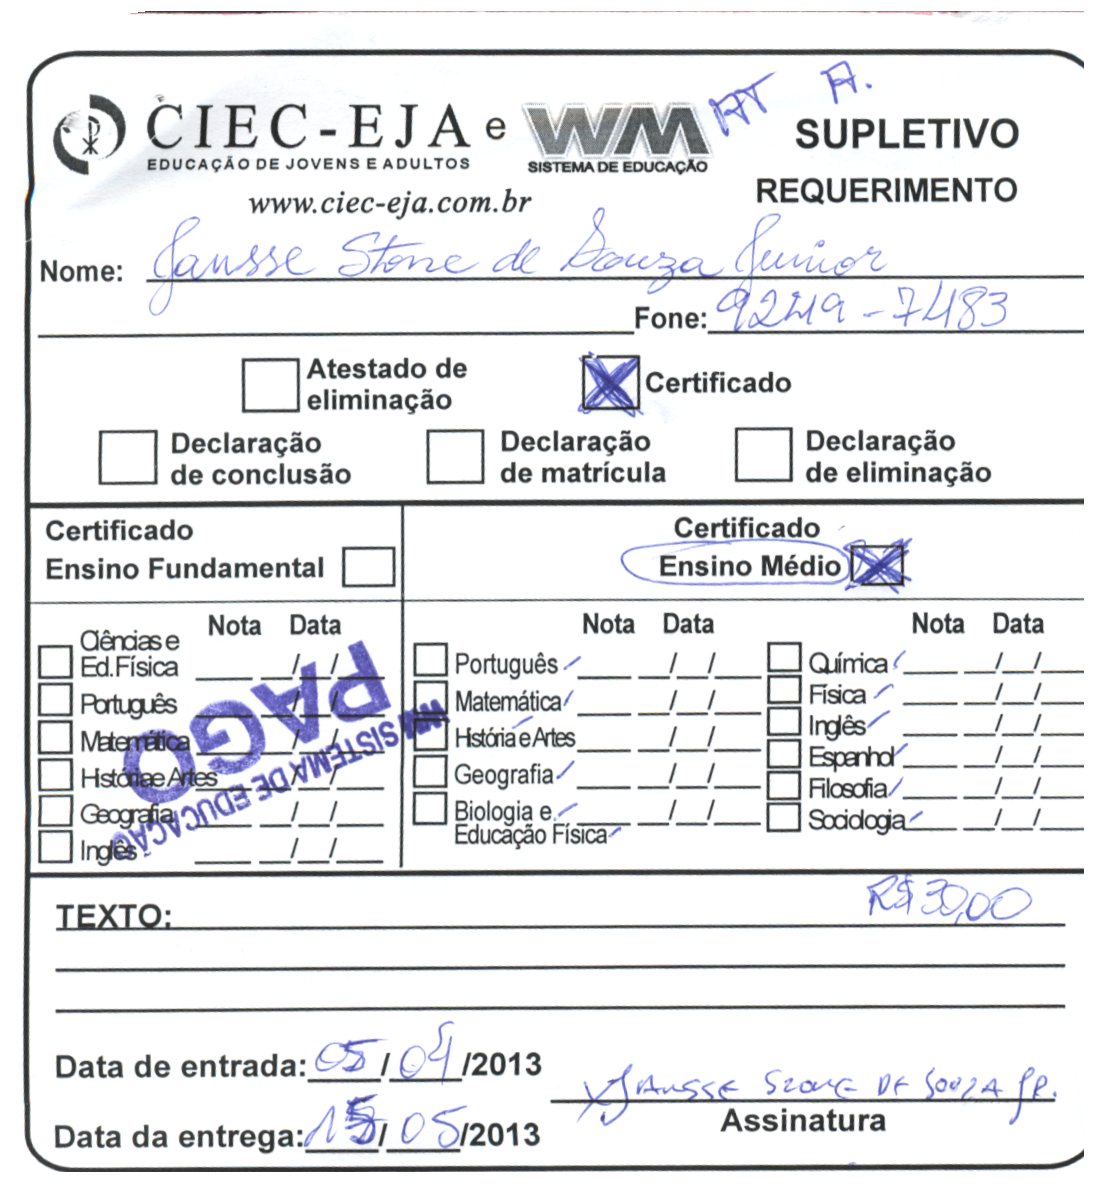 CIEC-EJA e WM
EDUCAÇÃO DE JOVENS E ADULTOS
SISTEMA DE EDUCAÇÃO
www.ciec-eja.com.br
SUPLETIVO
REQUERIMENTO
Nome: Jansse Stone de Souza Junior
Fone: 9249-7483
Atestado de eliminação
Certificado
Declaração de conclusão
Declaração de matrícula
Declaração de eliminação
Certificado
Ensino Fundamental
Certificado
Ensino Médio
Nota Data
Ciências e Ed.Física __/__/__
Português __/__/__
Matemática __/__/__
História e Artes __/__/__
Geografia __/__/__
Inglês __/__/__
PAGO
WM SISTEMA DE EDUCAÇÃO
Nota Data
Português __/__/__
Matemática __/__/__
História e Artes __/__/__
Geografia __/__/__
Biologia e Educação Física __/__/__
Nota Data
Química __/__/__
Física __/__/__
Inglês __/__/__
Espanhol __/__/__
Filosofia __/__/__
Sociologia __/__/__
TEXTO: R$ 30,00
Data de entrada: 05/04/2013
Data da entrega: 15/05/2013
Jansse Stone de Souza Jr.
Assinatura